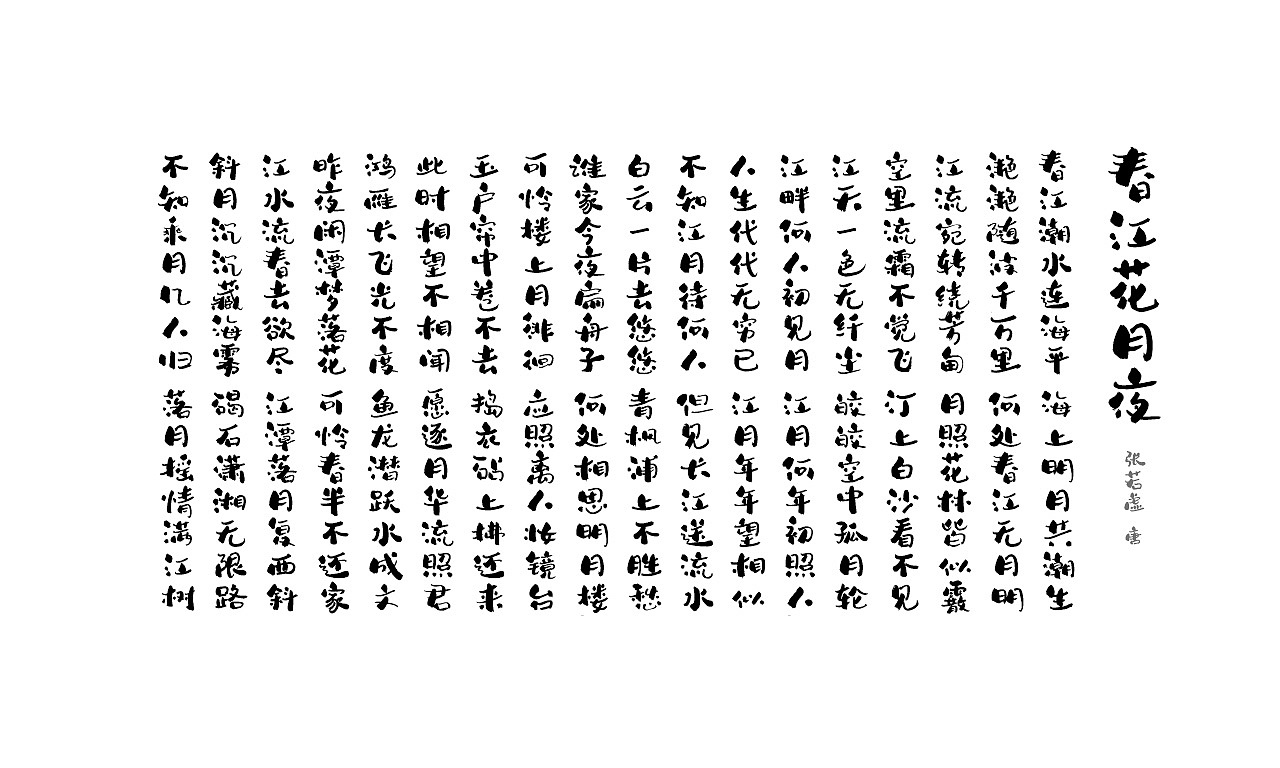 春江花月夜
张若虚 唐
春江潮水连海平 海上明月共潮生
滟滟随波千万里 何处春江无月明
江流宛转绕芳甸 月照花林皆似霰
空里流霜不觉飞 汀上白沙看不见
江天一色无纤尘 皎皎空中孤月轮
江畔何人初见月 江月何年初照人
人生代代无穷已 江月年年望相似
不知江月待何人 但见长江送流水
白云一片去悠悠 青枫浦上不胜愁
谁家今夜扁舟子 何处相思明月楼
可怜楼上月徘徊 应照离人妆镜台
玉户帘中卷不去 捣衣砧上拂还来
此时相望不相闻 愿逐月华流照君
鸿雁长飞光不度 鱼龙潜跃水成文
昨夜闲潭梦落花 可怜春半不还家
江水流春去欲尽 江潭落月复西斜
斜月沉沉藏海雾 碣石潇湘无限路
不知乘月几人归 落月摇情满江树